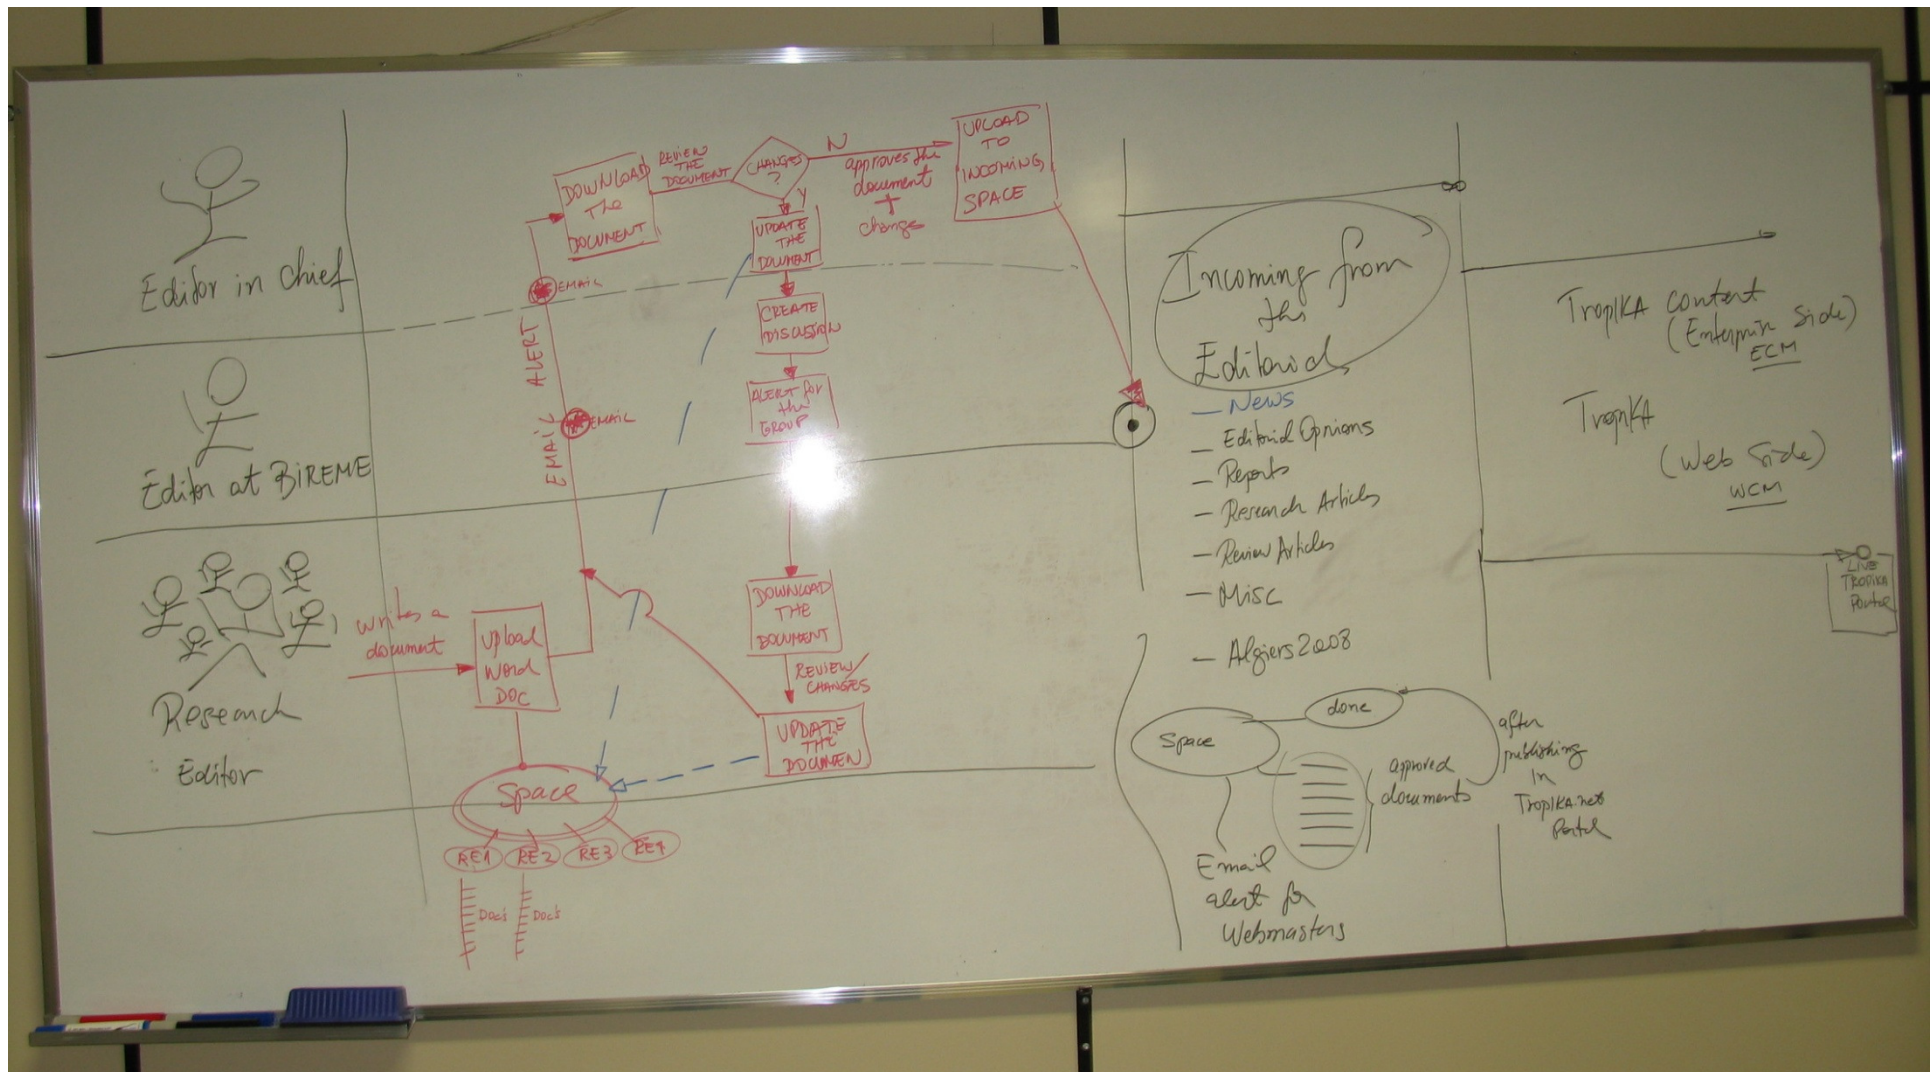 Editor in chief
Editor at BIREME
Research
Editor
writes a
document
Upload
Word
DOC
Space
RE1
RE2
RE3
RE4
Doc's
Doc's
EMAIL ALERT
EMAIL
EMAIL
DOWNLOAD
The
DOCUMENT
REVIEW
THE
DOCUMENT
CHANGES
?
N
Y
approves the
document
+
change
UPLOAD
TO
INCOMING
SPACE
UPDATE
THE
DOCUMENT
CREATE
DISCUSSION
ALERT for
the
GROUP
DOWNLOAD
THE
DOCUMENT
REVIEW/
CHANGES
UPDATE
THE
DOCUMEN
Incoming from
the
Editorial
- News
- Editorial Opnions
- Reports
- Research Articles
- Review Articles
- Misc
- Algiers 2008
Space
done
approved
documents
after
publishing
in
TropIKA.net
Portal
Email
alert for
Webmasters
TropIKA content
(Enterprise Side)
ECM
TropIKA
(Web Side)
WCM
LIVE
TROPIKA
Portal